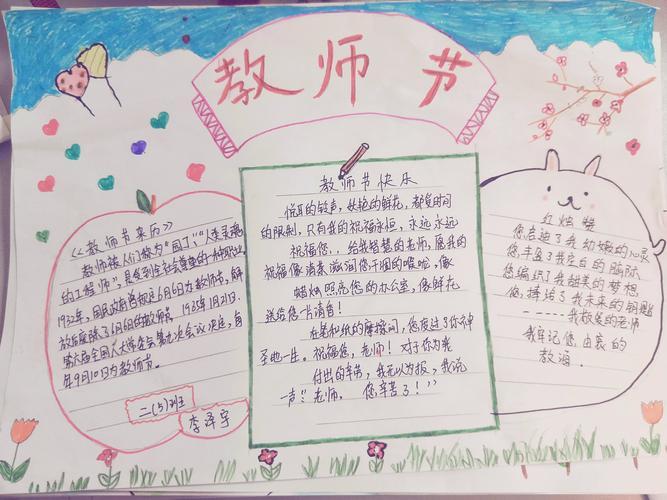 教师节
<<教师节来历>>
教师被人们称为“园丁”“人类灵魂
的工程师”，是受到全社会尊重的一种职业。
1932年，国民政府曾规定6月6日为教师节，解
放后废除了6月6日的教师节，1985年1月21日，
第六届全国人大常委会第九次会议决定，每
年9月10日为教师节。
二(5)班
李泽宇
教师节快乐
悦耳的铃声，妖艳的鲜花，都受时间
的限制，只有我的祝福永恒，永远永远
祝福您，给我智慧的老师，愿我的
祝福像清素滋润您干涸的喉咙，像
蜡烛照亮您的办公室，像鲜花
送给您一片清香！
在笔和纸的摩擦间，您度过了你神
圣地一生。祝福您，老师！对于你为我
付出的辛苦，我无以为报，我说
一声“老师，您辛苦了！”
红烛赞
您启迪了我幼嫩的心灵
您丰盈了我空白的脑际
您编织了我甜美的梦想
您，捧给了我未来的钥匙
-----我敬爱的老师
我牢记您由衷的
教诲。